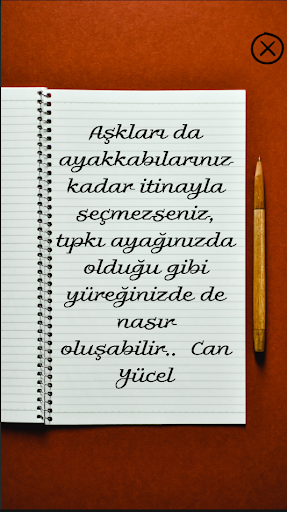 Aşkları da
ayakkabılarınız
kadar itinayla
seçmezseniz,
tıpkı ayağınızda
olduğu gibi
yüreğinizde de
nasır
oluşabilir.. Can
Yücel